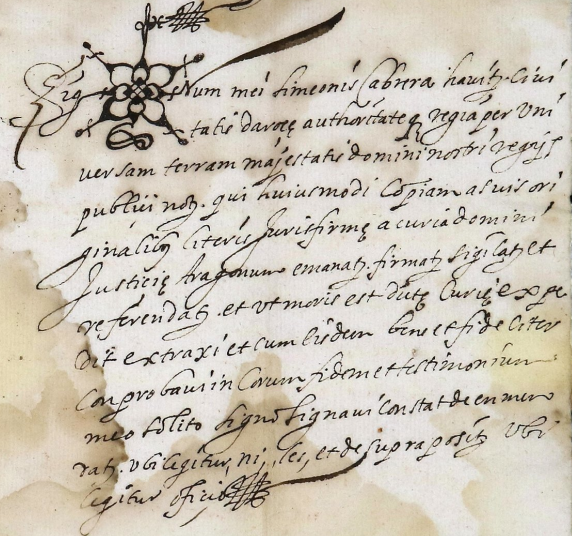 Sig num mei Simeonis Cabrera havitz. Civi
tatis daroce authoritateq regia per Uni
versam terram majestatis domini nostri regis
publici notz. qui huiusmodi Copiam a suis ori
ginalibz literis Jurisfirme a curia domini
Justicie Aragonum emanatz. firmatz sigilatz et
referendatz. et Ut moris est dicte Curie expe
dit extraxi et cum Eisdem bene et fideliter
Comprobavi in Corum fidem et testimonium
meo Solito Signo Signavi Constat de enmen
ratz. Ubi legitur, ni, les, et de supra positz Ubi
legitur oficio